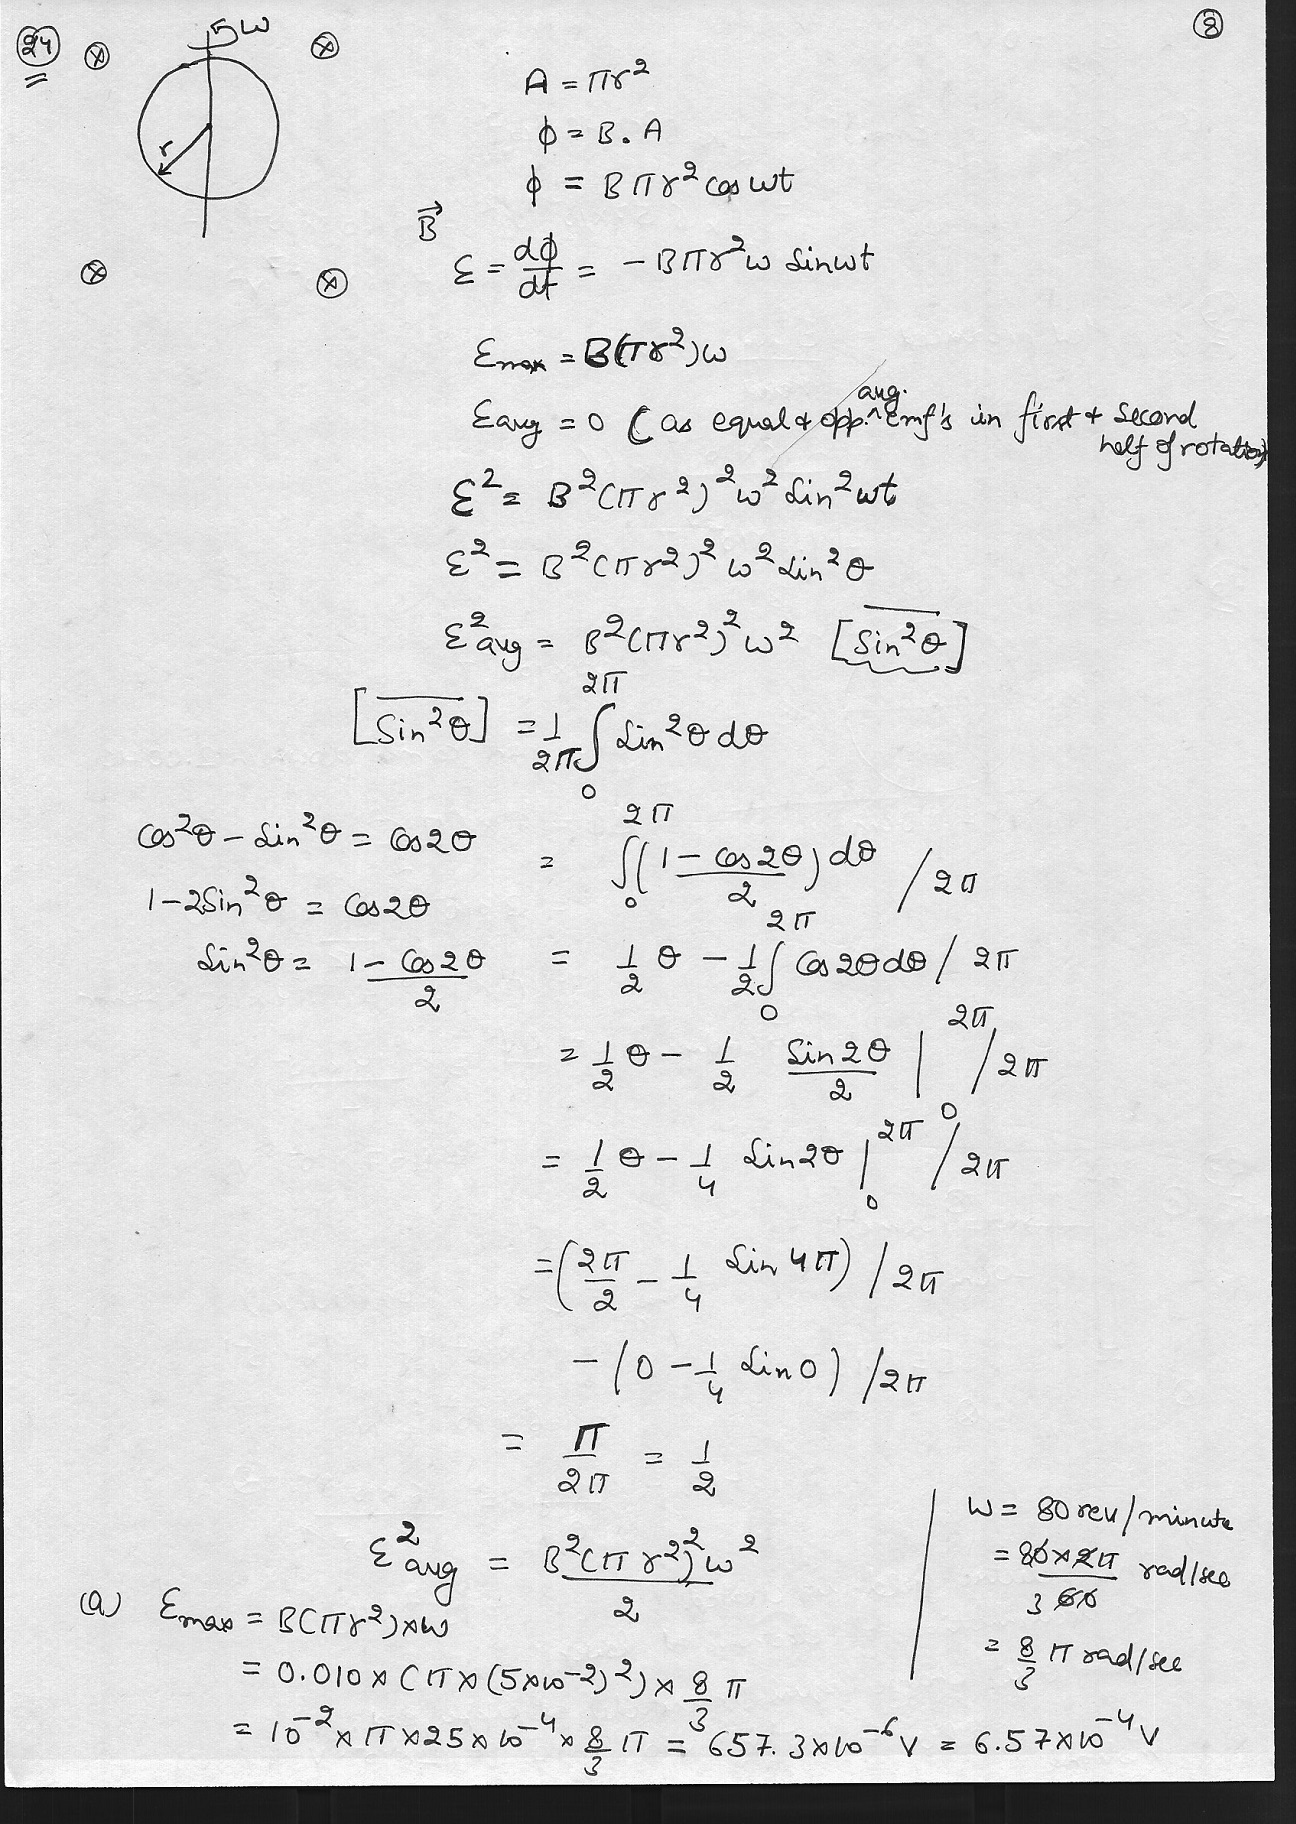 24
8
ω
r
A = πr²
ϕ = B . A
ϕ = Bπr² cos ωt
B⃗
ε = dϕ/dt = - Bπr²ω sinωt
εmax = B(πr²)ω
εavg = 0 ( as equal & opp. avg. emf's in first & second half of rotation)
ε² = B²(πr²)²ω² sin²ωt
ε² = B²(πr²)² ω² sin²θ
ε²avg = B²(πr²)²ω² [sin²θ]
[sin²θ] = 1/2π ∫₀^2π sin²θ dθ
cos²θ - sin²θ = cos2θ
= ∫₀^2π (1 - cos2θ)/2 dθ / 2π
1-2sin²θ = cos2θ
sin²θ = (1 - cos2θ)/2
= 1/2 θ - 1/2 ∫₀^2π cos2θdθ / 2π
= 1/2 θ - 1/2 sin2θ/2 |₀^2π / 2π
= 1/2 θ - 1/4 sin2θ |₀^2π / 2π
= (2π/2 - 1/4 sin4π) / 2π
- (0 - 1/4 sin0) / 2π
= π/2π = 1/2
ε²avg = B²(πr²)²ω²/2
ω = 80 rev/minute
= 80×2π/60 rad/sec
3
= 8/3 π rad/sec
(a) εmax = B(πr²)×ω
= 0.010 × (π×(5×10⁻²)²) × 8/3 π
= 10⁻² × π × 25 × 10⁻⁴ × 8/3 π = 657.3×10⁻⁶ V = 6.57×10⁻⁴ V